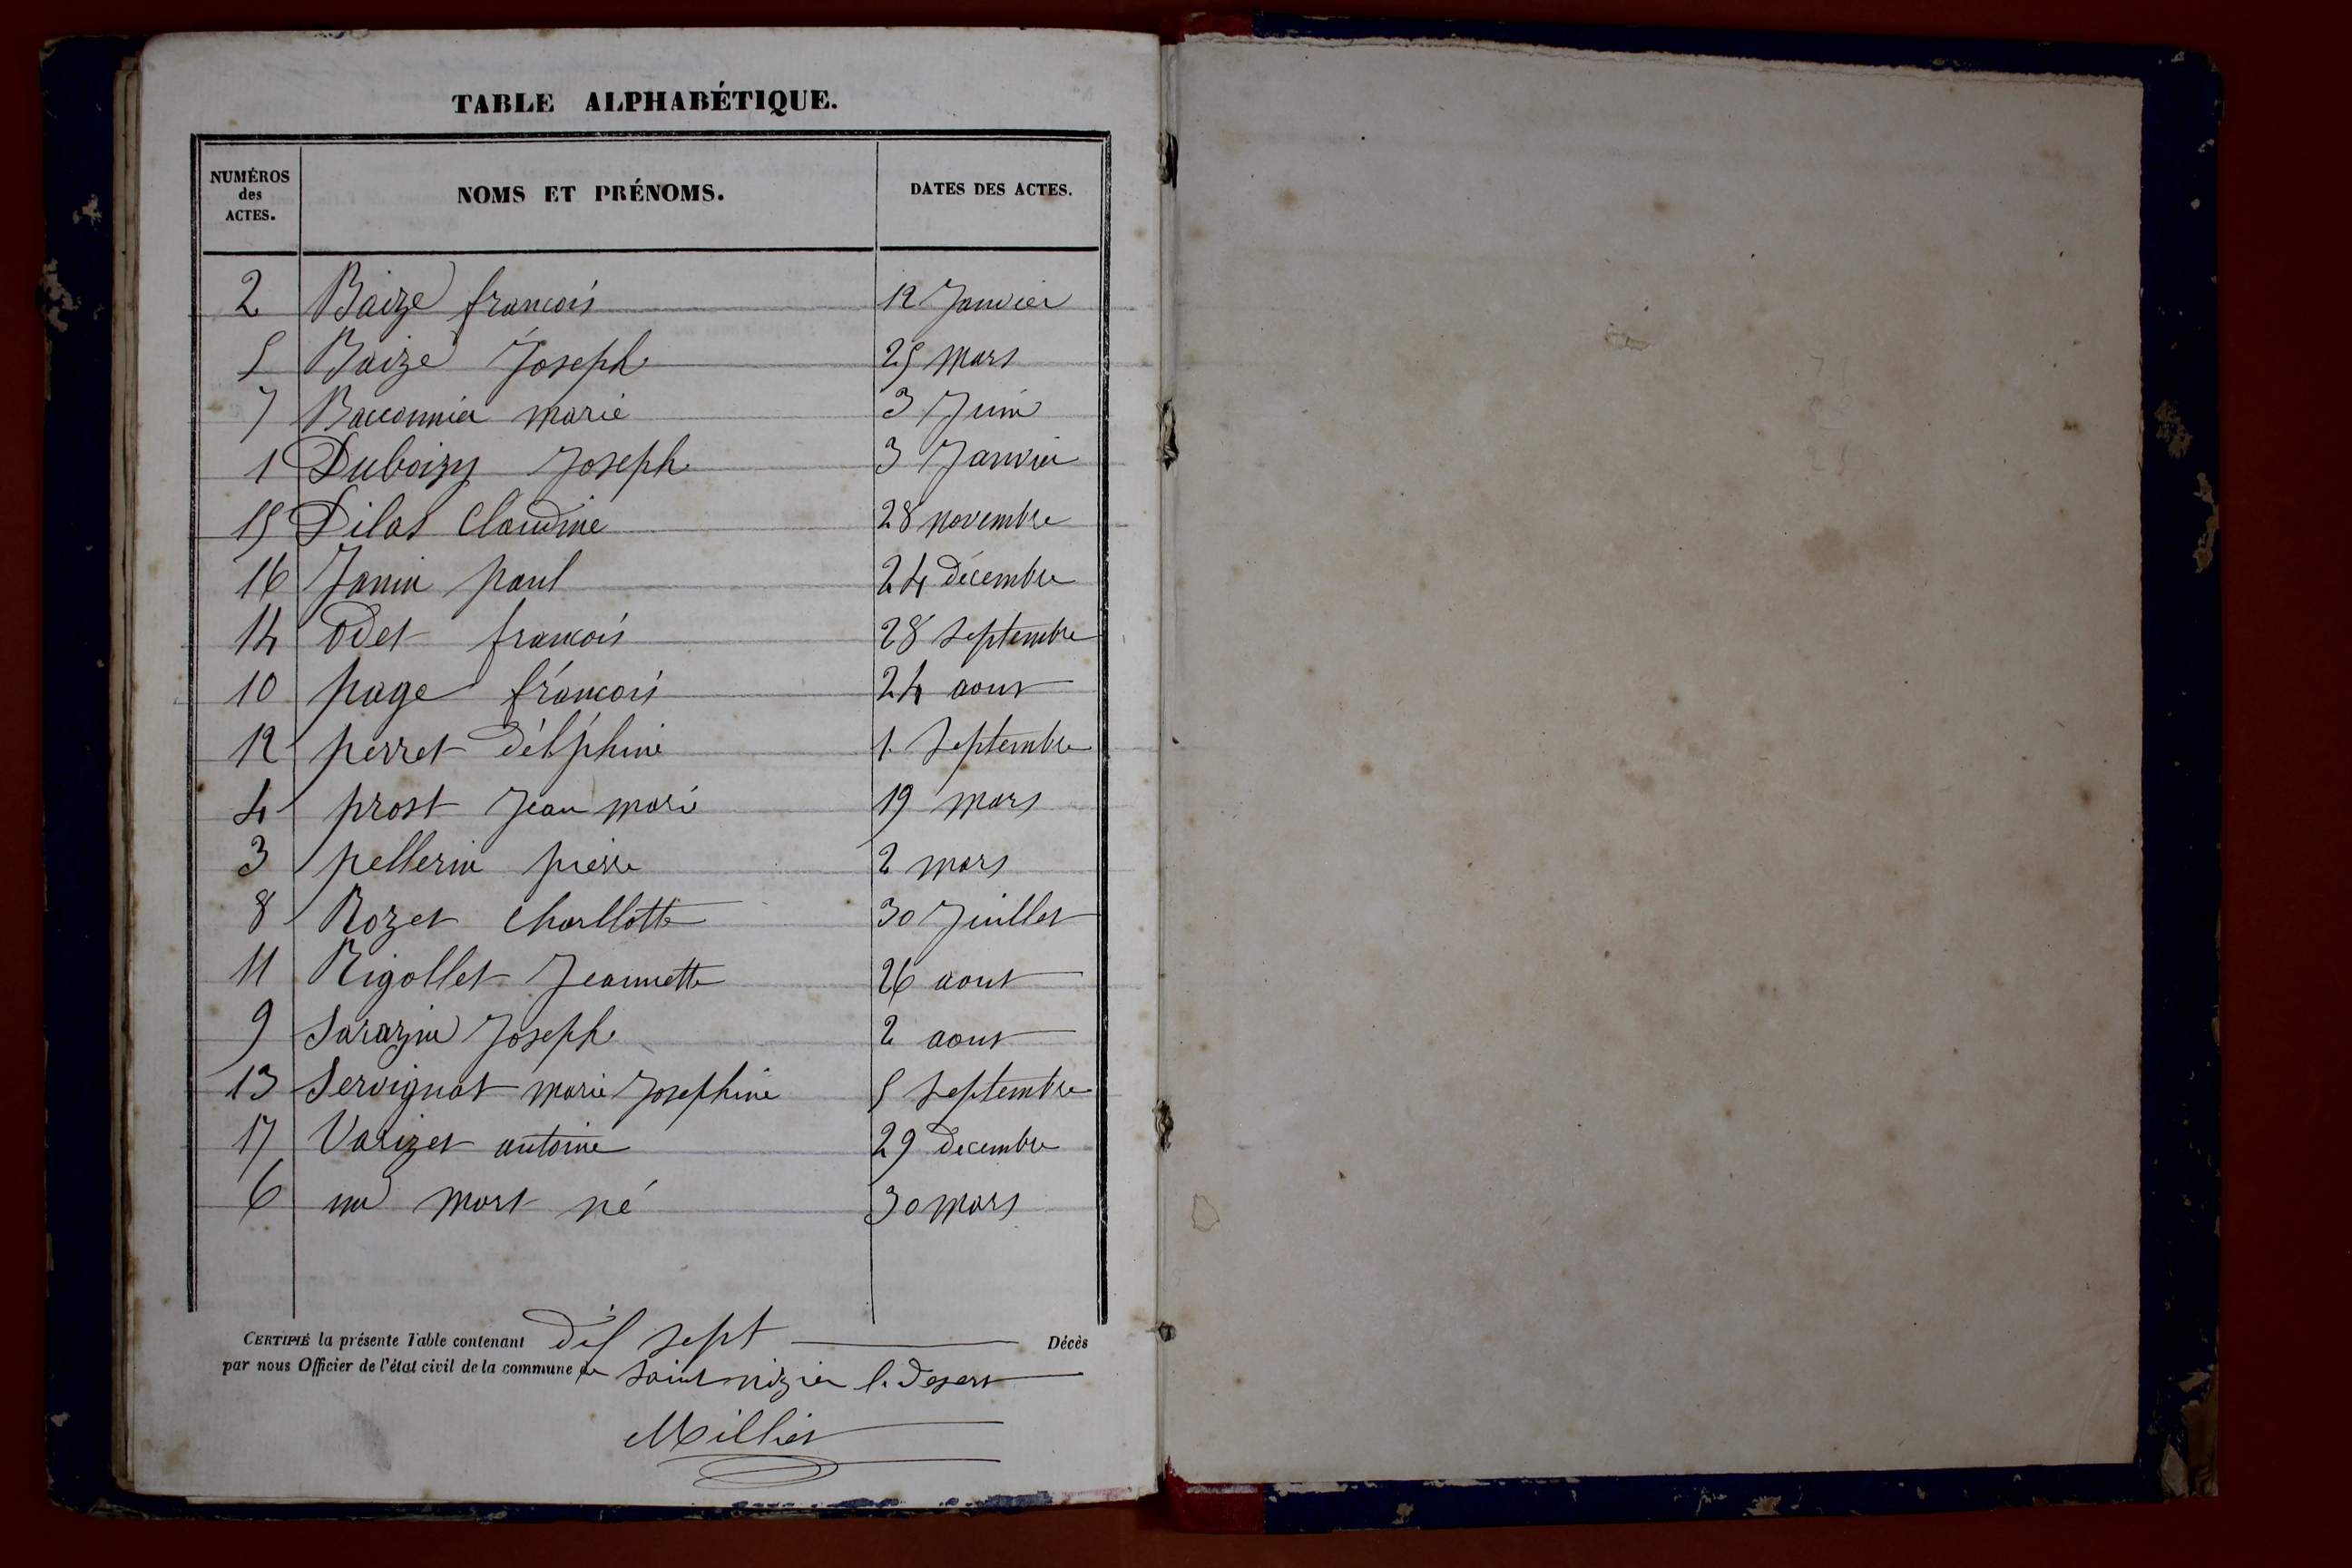 TABLE ALPHABÉTIQUE.
NUMÉROS des ACTES. NOMS ET PRÉNOMS. DATES DES ACTES.
2 Baize francois 12 Janvier
5 Baize Joseph 25 mars
7 Bacconnier marie 3 Juin
1 Duboizy Joseph 3 Janvier
15 Dilas Claudine 28 novembre
16 Janin paul 24 décembre
14 Odet francois 28 Septembre
10 page francois 24 aout
12 perret délphine 1 Septembre
4 prost Jean marie 19 mars
3 pellerin pierre 2 mars
8 Rozet Charllotte 30 Juillet
11 Rigollet Jeannette 26 aout
9 Sarazin Joseph 2 aout
13 Servignat marie Josephine 5 Septembre
17 Varizet antoine 29 decembre
6 un mort né 30 mars
CERTIFIÉ la présente Table contenant dix sept Décès
par nous Officier de l'état civil de la commune de saint nizier le desert
Milliet